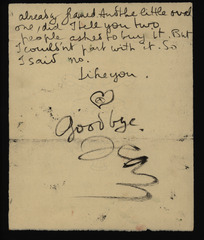 already framed Another little oval
one, did I tell you two
people asked to buy it. But
I couldn't part with it. So
I said no.
Like you.
Goodbye.